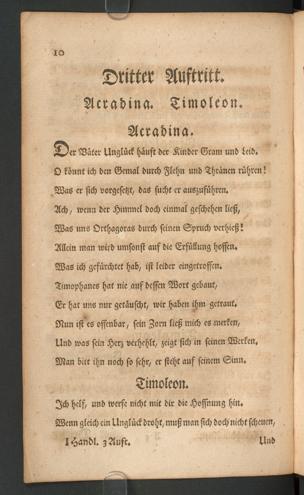 10
Dritter Auftritt.
Acradina. Timoleon.
Acradina.
Der Väter Unglück häuft der Kinder Gram und Leid.
O könnt ich den Gemal durch Flehn und Thränen rühren!
Was er sich vorgesetzt, das sucht er auszuführen.
Ach, wenn der Himmel doch einmal geschehen ließ,
Was uns Orthagoras durch seinen Spruch verhieß!
Allein man wird umsonst auf die Erfüllung hoffen.
Was ich gefürchtet hab, ist leider eingetroffen.
Timophanes hat nie auf dessen Wort gebaut,
Er hat uns nur getäuscht, wir haben ihm getraut.
Nun ist es offenbar, sein Zorn ließ mich es merken,
Und was sein Herz verhehlt, zeigt sich in seinen Werken.
Man bitt ihn noch so sehr, er steht auf seinem Sinn.
Timoleon.
Ich helf, und werfe nicht mit dir die Hoffnung hin.
Wenn gleich ein Unglück droht, muß man sich doch nicht scheuen,
I Handl. 3 Auft. Und